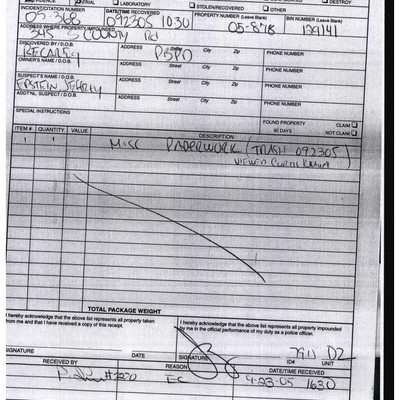 EVIDENCE TRIAL LABORATORY STOLEN/RECOVERED DESTROY
OTHER
INCIDENT/CITATION NUMBER DATE/TIME RECOVERED PROPERTY NUMBER (Leave Blank) BIN NUMBER (Leave Blank)
05-368 092305 1030 05-878 129141
ADDRESS WHERE PROPERTY IMPOUNDED Street City Zip
S COUNTY Rd
DISCOVERED BY / D.O.B. ADDRESS Street City Zip PHONE NUMBER
RECAREY PBPD
OWNER'S NAME / D.O.B. ADDRESS Street City Zip PHONE NUMBER
SUSPECT'S NAME / D.O.B. ADDRESS Street City Zip PHONE NUMBER
EPSTEIN JEFFREY
ADDT'NL SUSPECT / D.O.B. ADDRESS Street City Zip PHONE NUMBER
SPECIAL INSTRUCTIONS FOUND PROPERTY CLAIM
90 DAYS NOT CLAIM
ITEM # QUANTITY VALUE DESCRIPTION
1 1 MISC PAPERWORK (TRASH 092305)
VIEWED
TOTAL PACKAGE WEIGHT
I hereby acknowledge that the above list represents all property taken
from me and that I have received a copy of this receipt.
I hereby acknowledge that the above list represents all property impounded
by me in the official performance of my duty as a police officer.
7911 D2
SIGNATURE DATE SIGNATURE ID# UNIT
RECEIVED BY REASON DATE/TIME RECEIVED
EC 9-23-05 1630